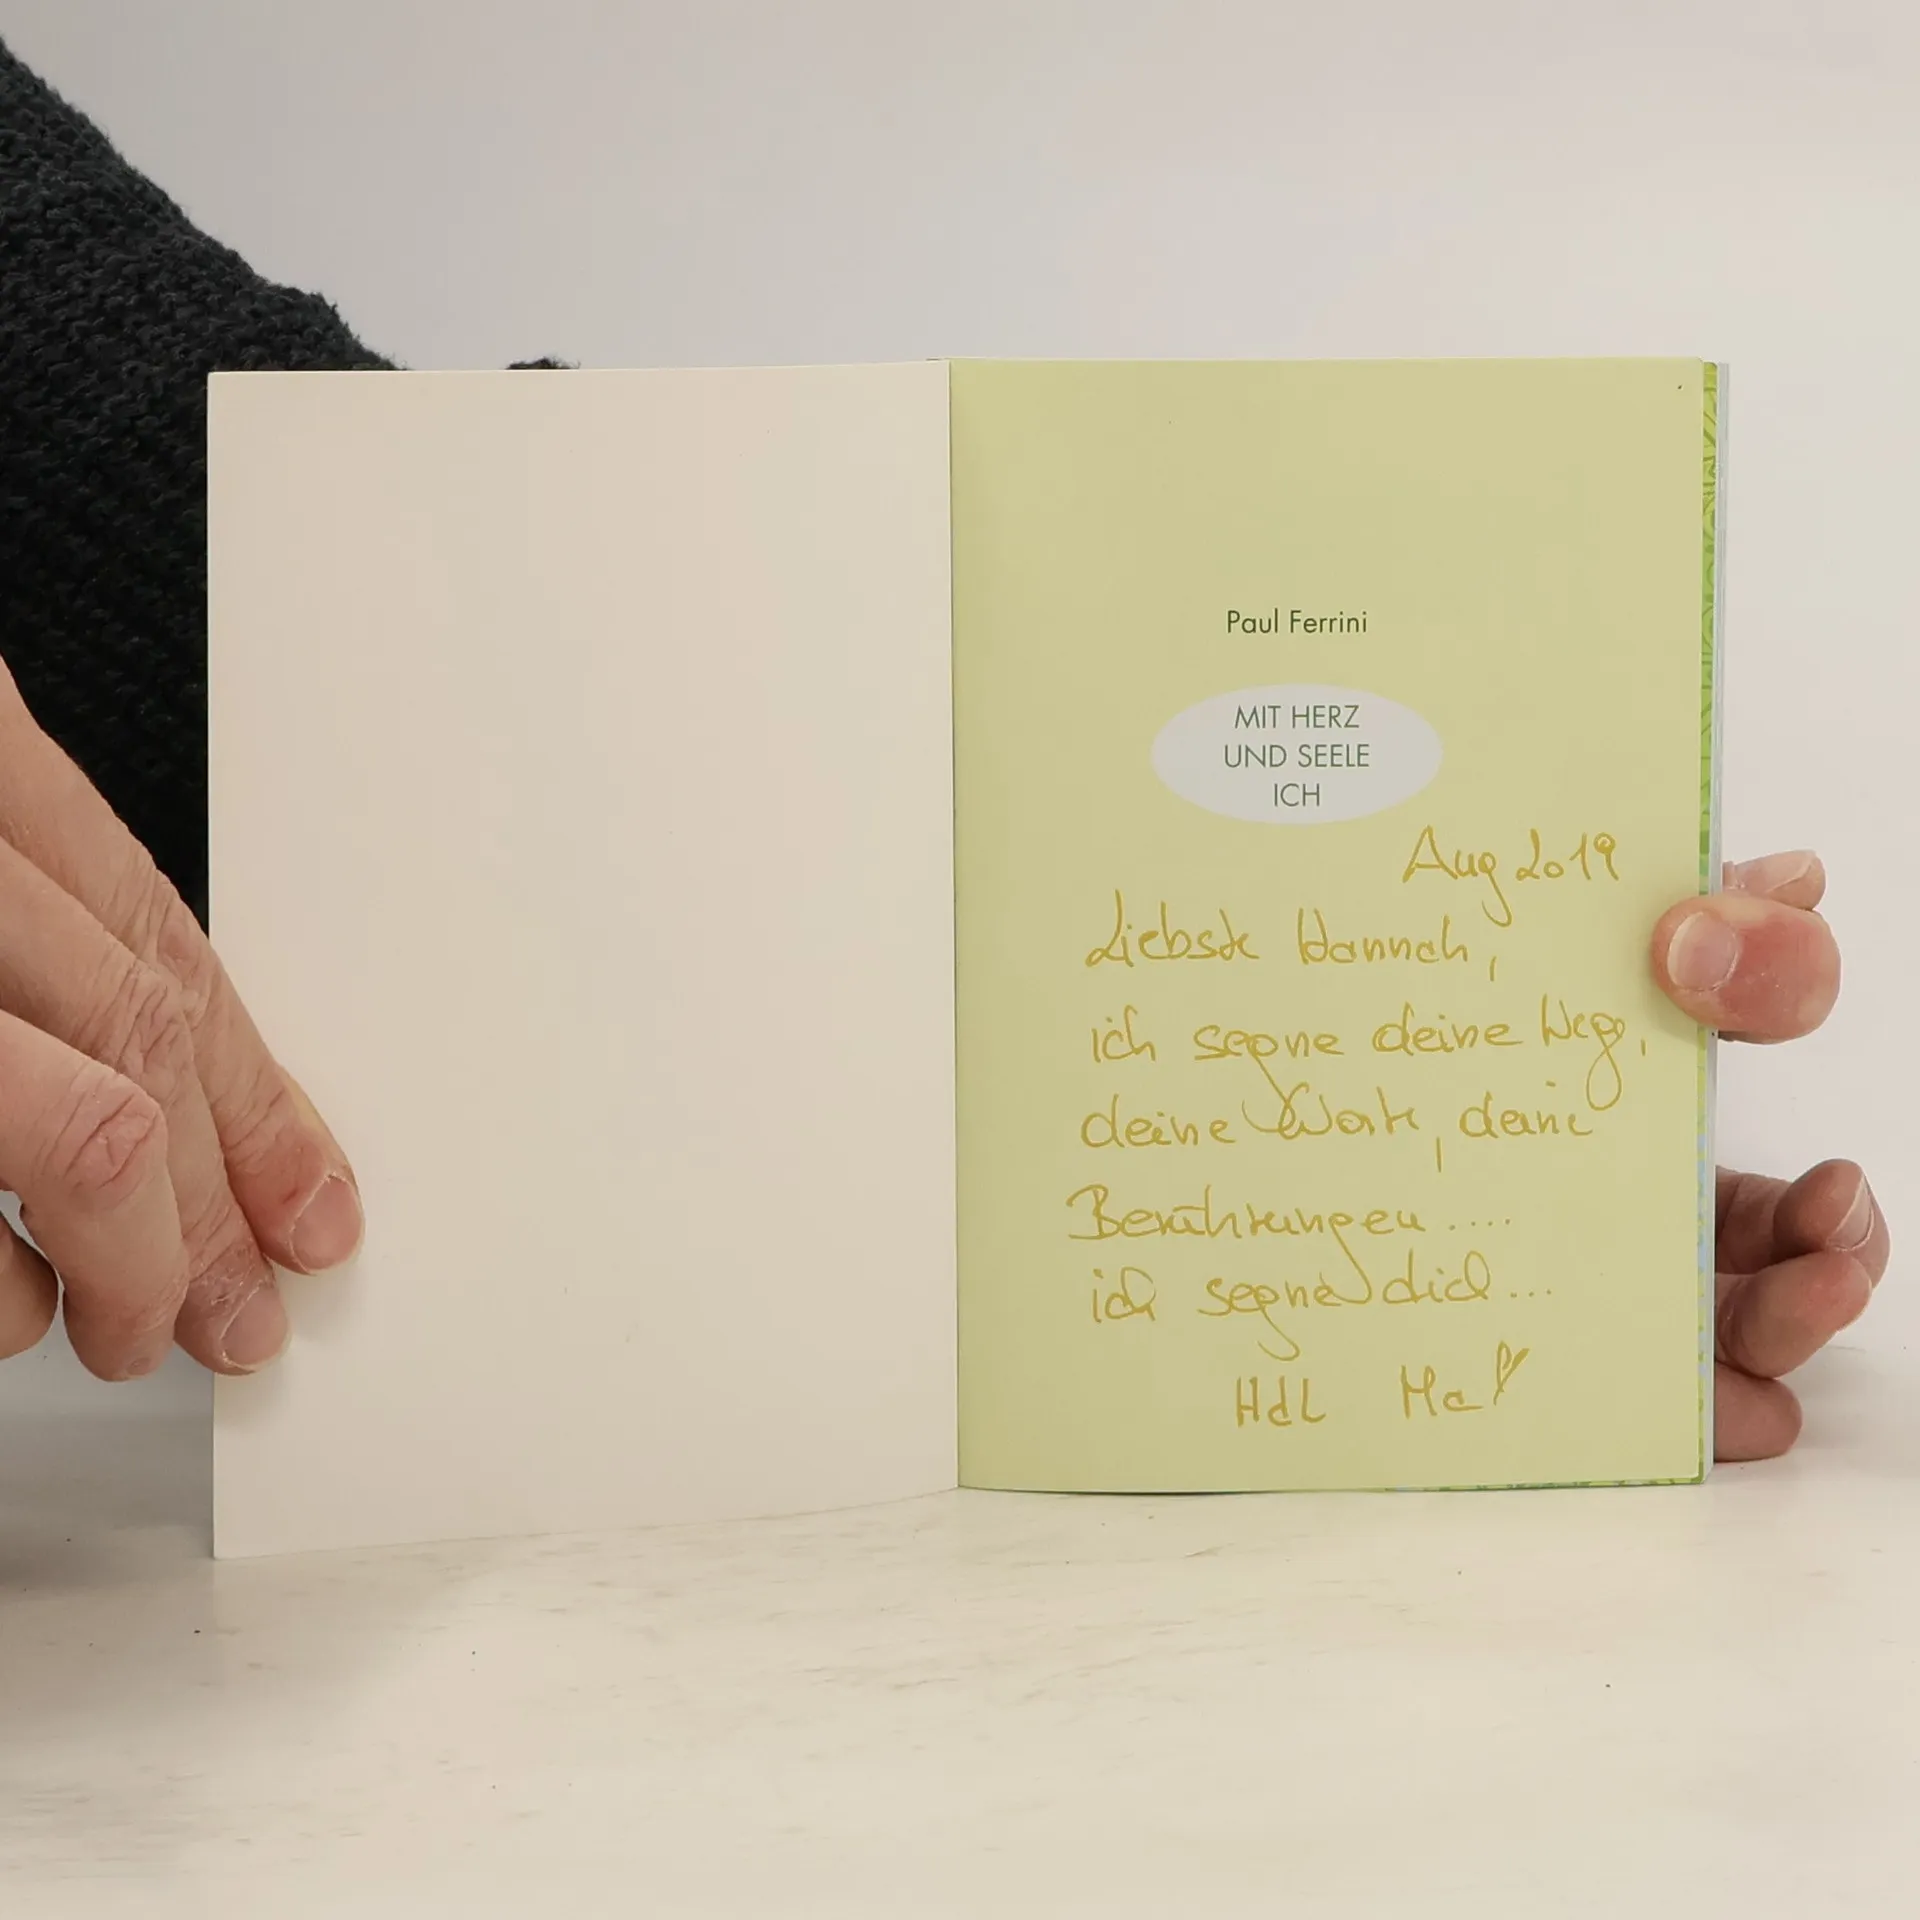 Paul Ferrini
MIT HERZ
UND SEELE
ICH
Aug 2019
Liebste Hannah,
ich segne deine Wege,
deine Worte, deine
Berührungen ....
ich segne dich ...
HdL Ma